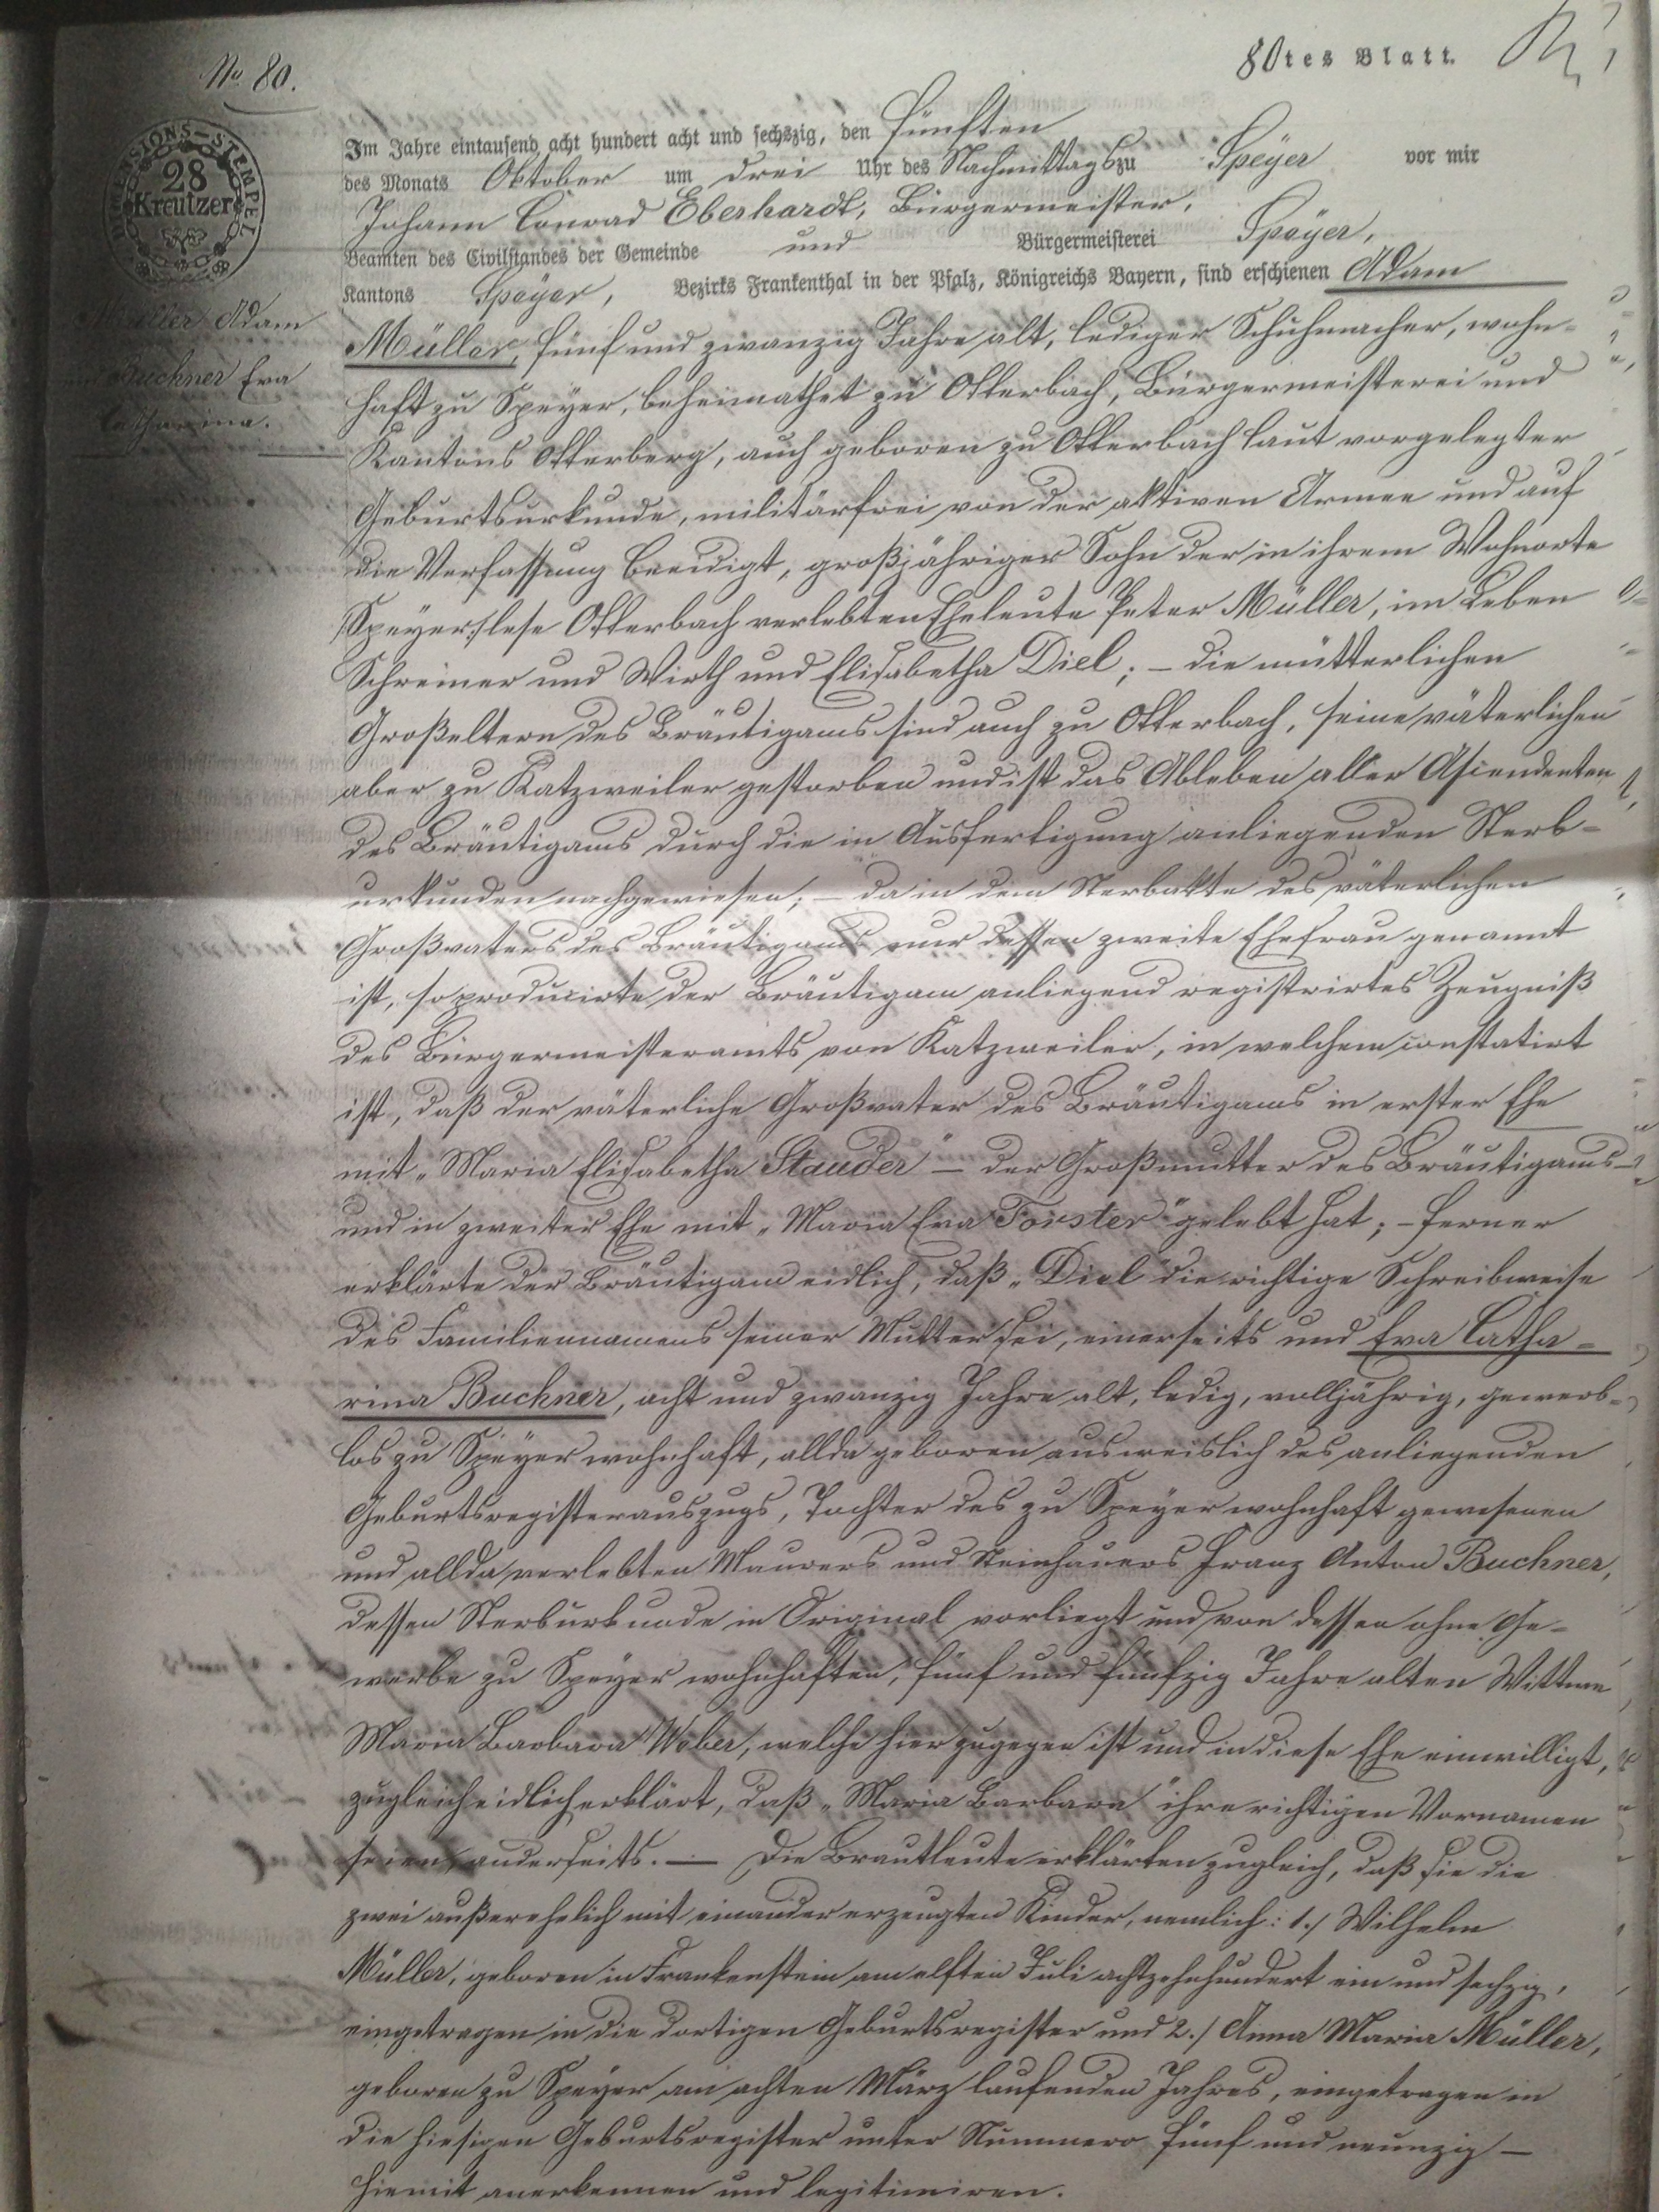 No 80.
80tes Blatt.
DIMENSIONS-STEMPEL
28
Kreutzer
Im Jahre eintausend acht hundert acht und sechszig, den fünften
des Monats Oktober um drei Uhr des Nachmittags zu Speyer vor mir
Johann Conrad Eberhardt, Bürgermeister,
Beamten des Civilstandes der Gemeinde und Bürgermeisterei Speyer,
Kantons Speyer, Bezirks Frankenthal in der Pfalz, Königreichs Bayern, sind erschienen Adam
Müller Adam
Buchner Eva
Catharina.
Müller, fünf und zwanzig Jahre alt, lediger Schuhmacher, wohn-
haft zu Speyer, beheimathet zu Otterbach, Bürgermeisterei und
Kantons Otterberg, auch geboren zu Otterbach laut vorgelegter
Geburtsurkunde, militärfrei von der aktiven Armee und auf
die Verfassung beeidigt, großjähriger Sohn der in ihrem Wohnorte
Speyer: lese Otterbach verlebten Eheleute Peter Müller, im Leben
Schreiner und Wirth und Elisabetha Diel; – die mütterlichen
Großeltern des Bräutigams sind auch zu Otterbach, seine väterlichen
aber zu Katzweiler gestorben und ist das Ableben aller Ascendenten
des Bräutigams durch die in Ausfertigung anliegenden Sterb-
urkunden nachgewiesen; – da in dem Sterbakte des väterlichen
Großvaters des Bräutigams nur dessen zweite Ehefrau genannt
ist, so producirte der Bräutigam anliegend registrirtes Zeugniß
des Bürgermeisteramts von Katzweiler, in welchem constatirt
ist, daß der väterliche Großvater des Bräutigams in erster Ehe
mit „Maria Elisabetha Stauder" – der Großmutter des Bräutigams –
und in zweiter Ehe mit „Maria Eva Forster" gelebt hat; – ferner
erklärte der Bräutigam eidlich, daß „Diel" die richtige Schreibweise
des Familiennamens seiner Mutter sei, einerseits und Eva Catha-
rina Buchner, acht und zwanzig Jahre alt, ledig, volljährig, gewerb-
los zu Speyer wohnhaft, allda geboren ausweislich des anliegenden
Geburtsregisterauszugs, Tochter des zu Speyer wohnhaft gewesenen
und allda verlebten Maurers und Steinhauers Franz Anton Buchner,
dessen Sterburkunde in Original vorliegt und von dessen ohne Ge-
werbe zu Speyer wohnhaften, fünf und fünfzig Jahre alten Wittwe
Maria Barbara Weber, welche hier zugegen ist und in diese Ehe einwilligt,
zugleich eidlich erklärt, daß „Maria Barbara" ihre richtigen Vornamen
seien, anderseits. — Die Brautleute erklärten zugleich, daß sie die
zwei außerehelich mit einander erzeugten Kinder, nemlich: 1./ Wilhelm
Müller, geboren in Frankenstein am elften Juli achtzehnhundert ein und sechzig,
eingetragen in die dortigen Geburtsregister und 2./ Anna Maria Müller,
geboren zu Speyer am achten März laufenden Jahres, eingetragen in
die hiesigen Geburtsregister unter Nummero fünf und neunzig –
hiemit anerkennen und legitimiren.